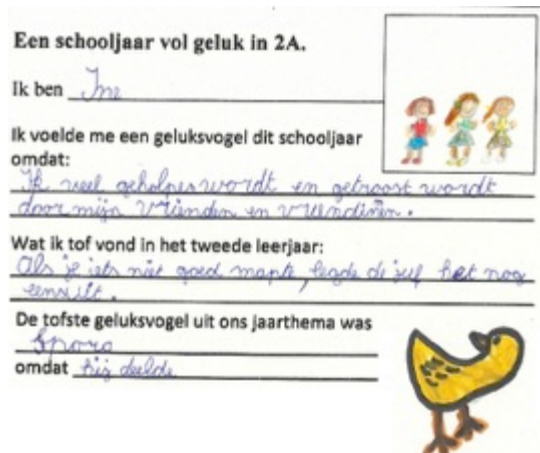 Een schooljaar vol geluk in 2A.
Ik ben Ine
Ik voelde me een geluksvogel dit schooljaar
omdat:
Ik veel geholpen wordt en getroost wordt
door mijn vrienden en vriendinnen.
Wat ik tof vond in het tweede leerjaar:
Als je iets niet goed snapte, legde de juf het nog
eens uit.
De tofste geluksvogel uit ons jaarthema was
omdat hij deelde